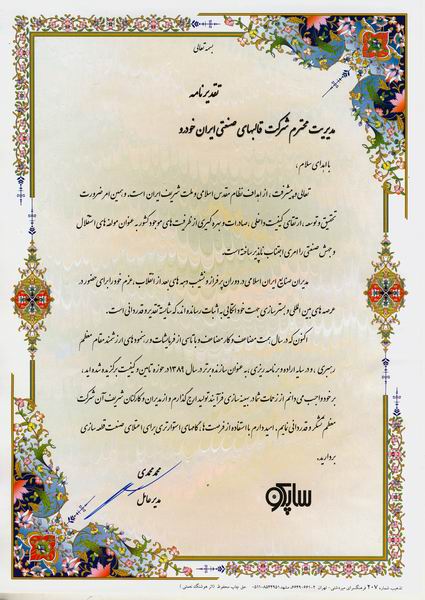 بسمه تعالی
تقدیرنامه
مدیریت محترم شرکت قالبهای صنعتی ایران خودرو
با اهدای سلام ،
تعالی و پیشرفت ، از اهداف نظام مقدس اسلامی و ملت شریف ایران است. و همین امر ضرورت
تحقیق و توسعه ، ارتقای کیفیت داخلی ، صادرات و بهره گیری از ظرفیت های موجود کشور به عنوان مولفه های استقلال
و جهش صنعتی را امری اجتناب ناپذیر ساخته است.
مدیران صنایع ایران اسلامی در دوران پر فراز و نشیب دهه های بعد از انقلاب ، عزم خود را برای حضور در
عرصه های بین المللی و بسترسازی جهت خوداتکائی به اثبات رسانده اند، که شایسته تقدیر و قدردانی است.
اکنون که در سال همت مضاعف و کار مضاعف و با تاسی از فرمایشات و رهنمودهای ارزشمند مقام معظم
رهبری ، و در سایه اراده و برنامه ریزی ، به عنوان سازنده برتر در سال ۱۳۸۹ در حوزه تامین و کیفیت برگزیده شده اید ،
بر خود واجب می دانم از زحمات شما در بهینه سازی فرآیند تولید ارج گذارم و از مدیران و کارکنان شریف آن شرکت
معظم تشکر و قدردانی نمایم . امید دارم با استفاده از فرصت ها، گامهای استوارتری برای اعتلای صنعت قطعه سازی
بردارید.
محمد محمدی
مدیر عامل
ساپکو
تذهیب شماره ۲۰۷ فرهنگسرای میردشتی - تهران
حق چاپ محفوظ